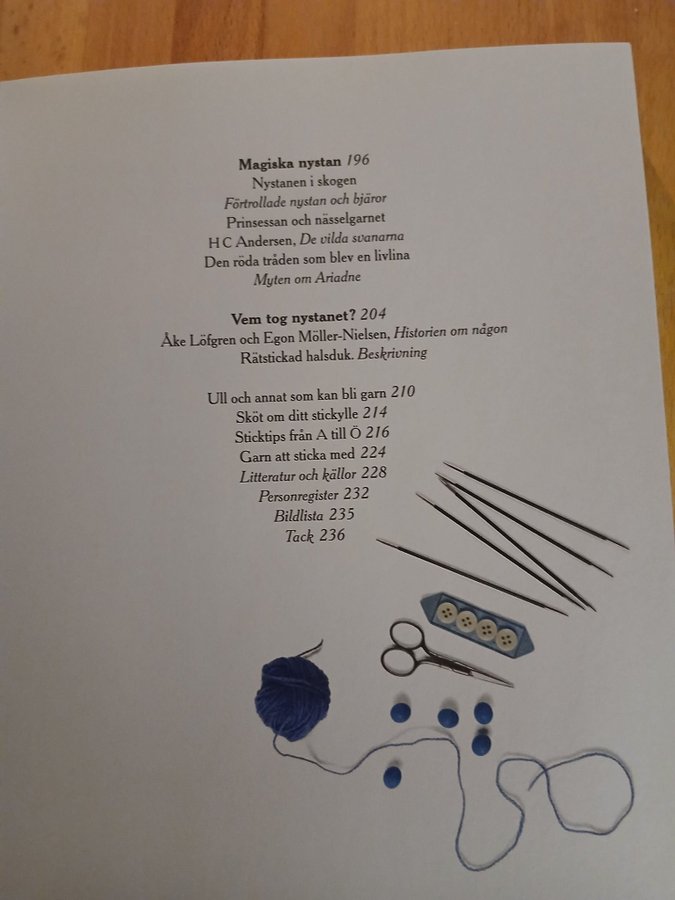 Magiska nystan 196
Nystanen i skogen
Förtrollade nystan och bjäror
Prinsessan och nässelgarnet
H C Andersen, De vilda svanarna
Den röda tråden som blev en livlina
Myten om Ariadne
Vem tog nystanet? 204
Åke Löfgren och Egon Möller-Nielsen, Historien om någon
Rätstickad halsduk. Beskrivning
Ull och annat som kan bli garn 210
Sköt om ditt stickylle 214
Sticktips från A till Ö 216
Garn att sticka med 224
Litteratur och källor 228
Personregister 232
Bildlista 235
Tack 236